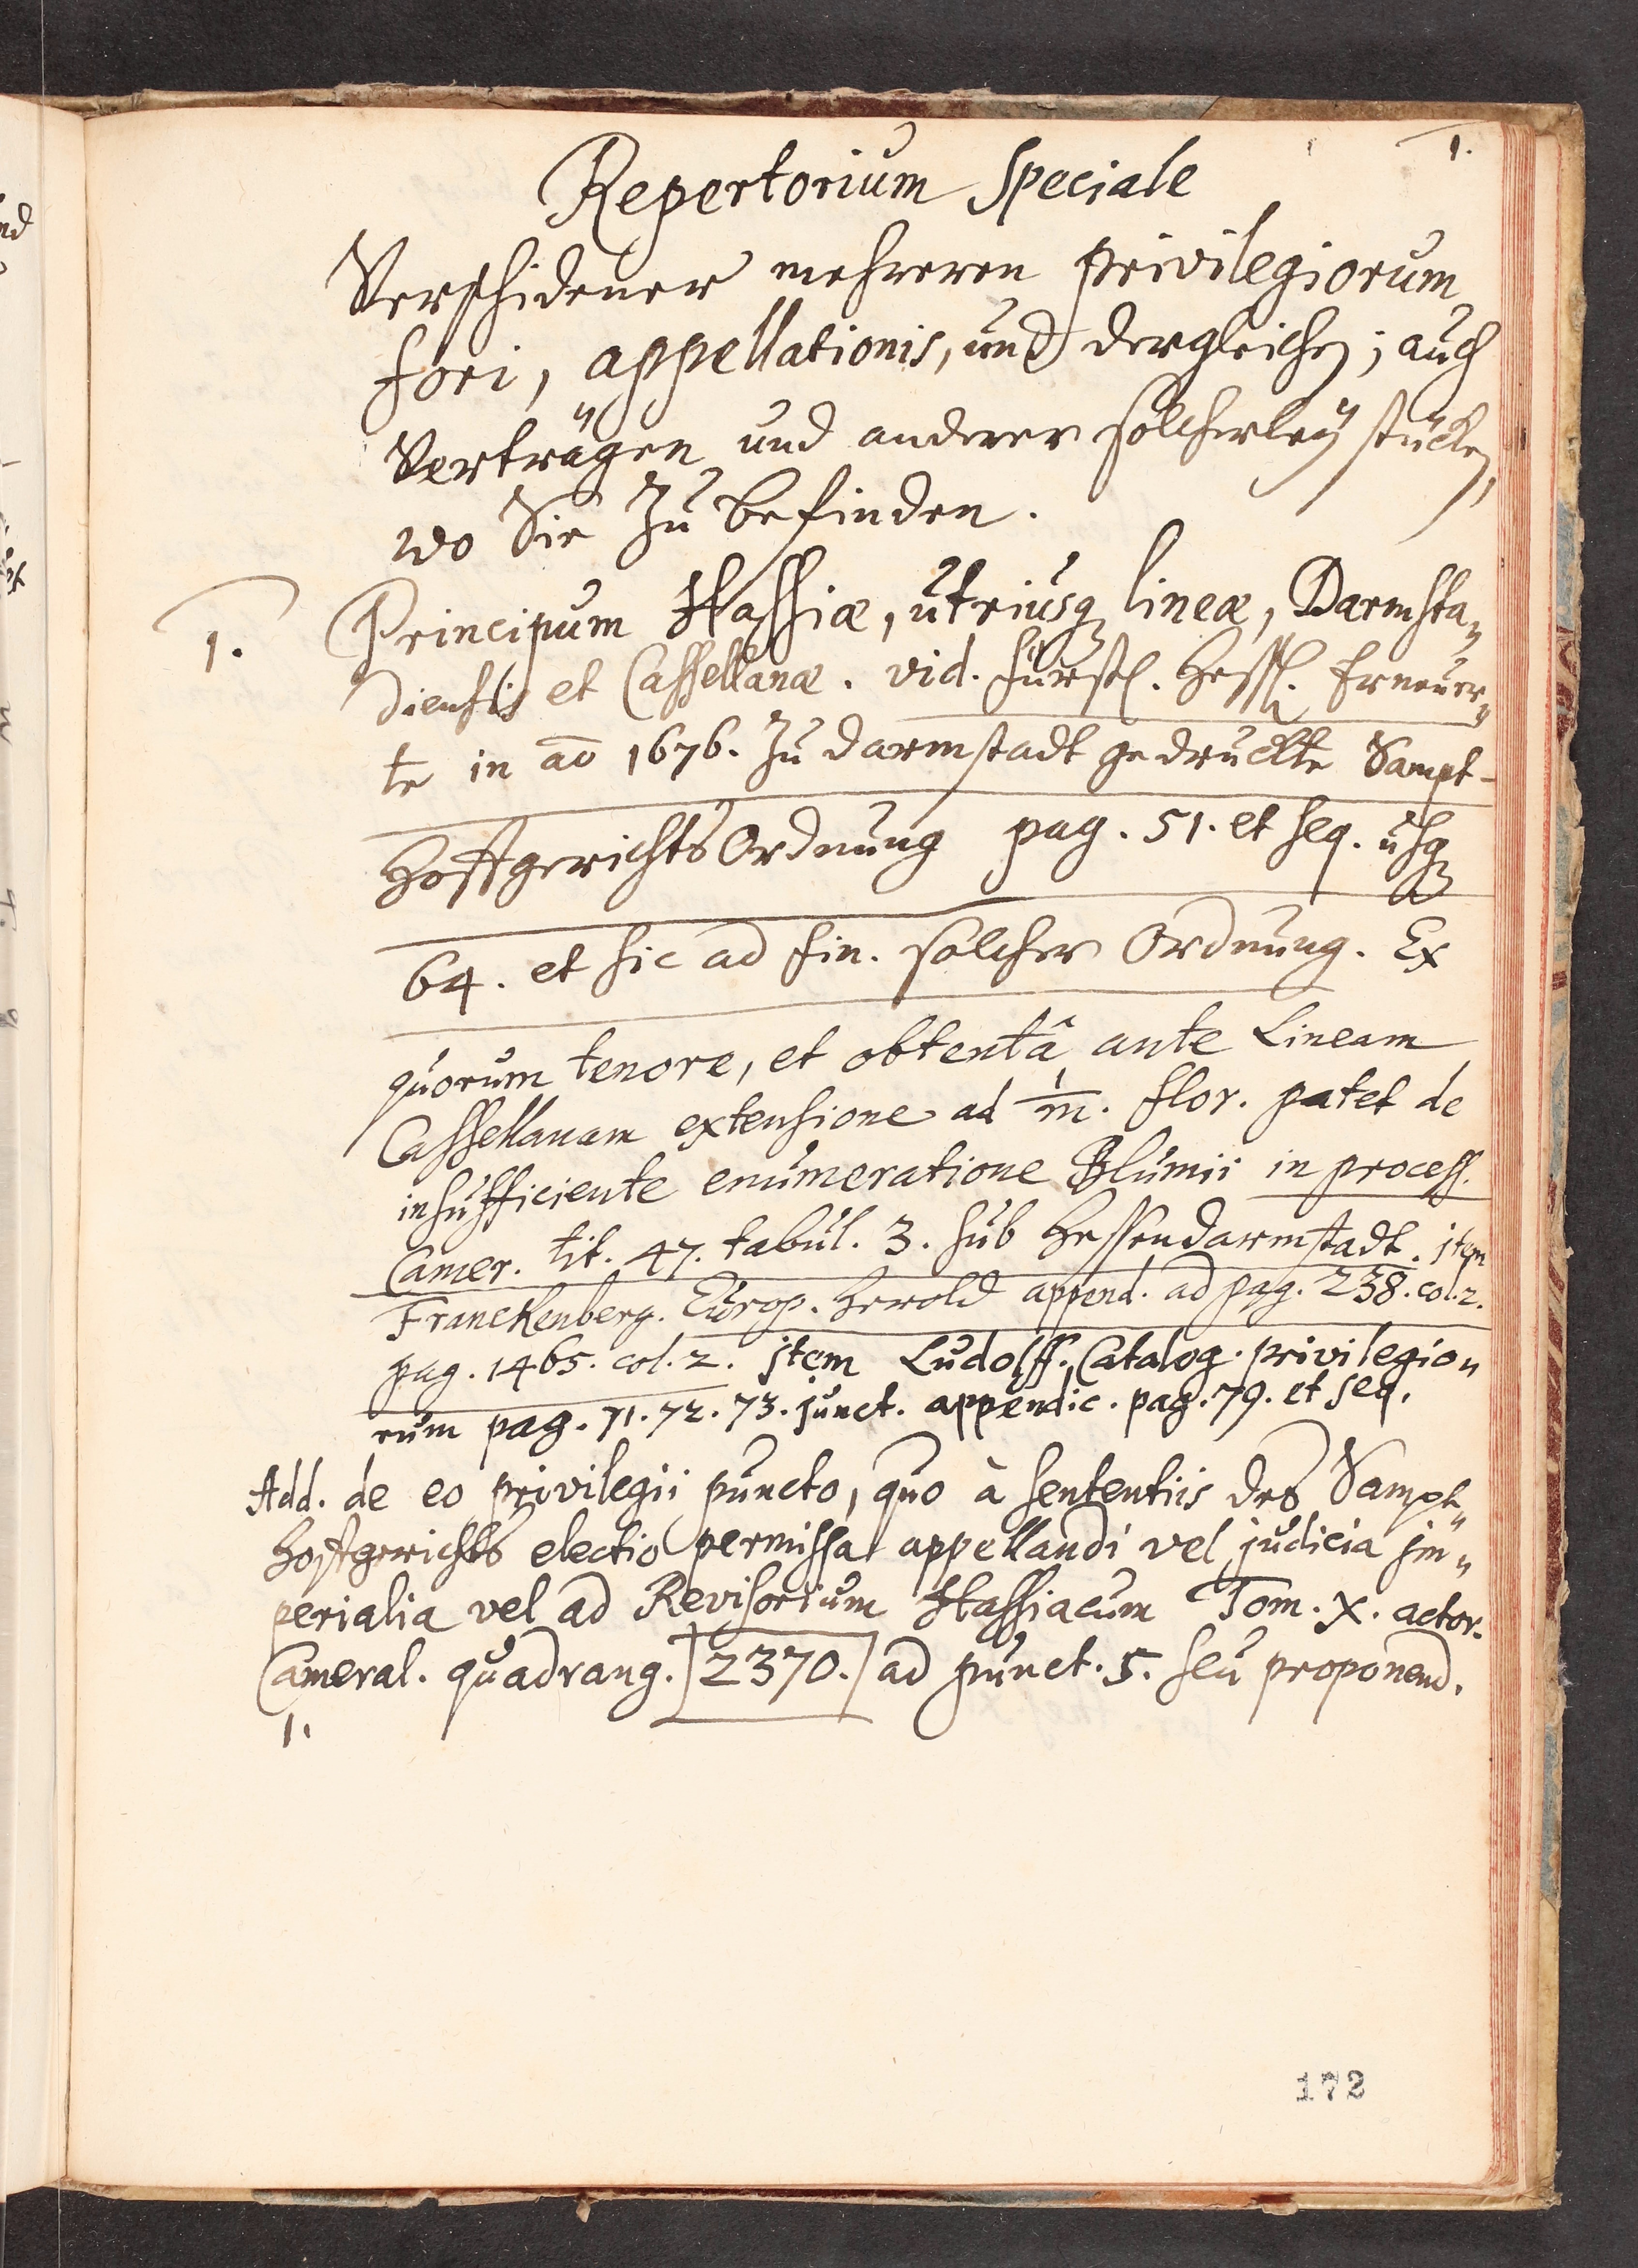 1.
Repertorium Speciale
Verschidener mehreren privilegiorum
fori, appellationis, und dergleichen; auch
Verträgen und anderer solcherleÿ stücken,
wo Sie zu befinden.
1. Principum Hassiæ, utriusq lineæ, Darmsta„
diensis et Cassellanæ. vid. fürstl. Hessl. Erneüer„
te in aō 1676. zu darmstadt gedruckte Sampt-
HoffgerichtsOrdnung pag. 51. et seq. usq
64. et sic ad fin. solcher Ordnung. Ex
quorum tenore, et obtentâ ante Lineam
Cassellanam extensione ad 1/m. flor. patet de
insufficiente enumeratione Blumii in process.
Camer. tit. 47. tabul. 3. sub Hessendarmstadt. jtem
Franckenberg. Europ. Herold append. ad pag. 238. col. 2.
pag. 1465. col. 2. jtem Ludolff. Catalog. privilegio„
rum pag. 71. 72. 73. junct. appendic. pag. 79. et seq.
Add. de eo privilegii puncto, quo à sententiis des Sampt„
Hoffgerichts electio permissa appellandi vel judicia jm„
perialia vel ad Revisorium Hassiacum Tom. X. actor.
Cameral. quadrang. 2370. ad punct. 5. seu proponend.
1.
172